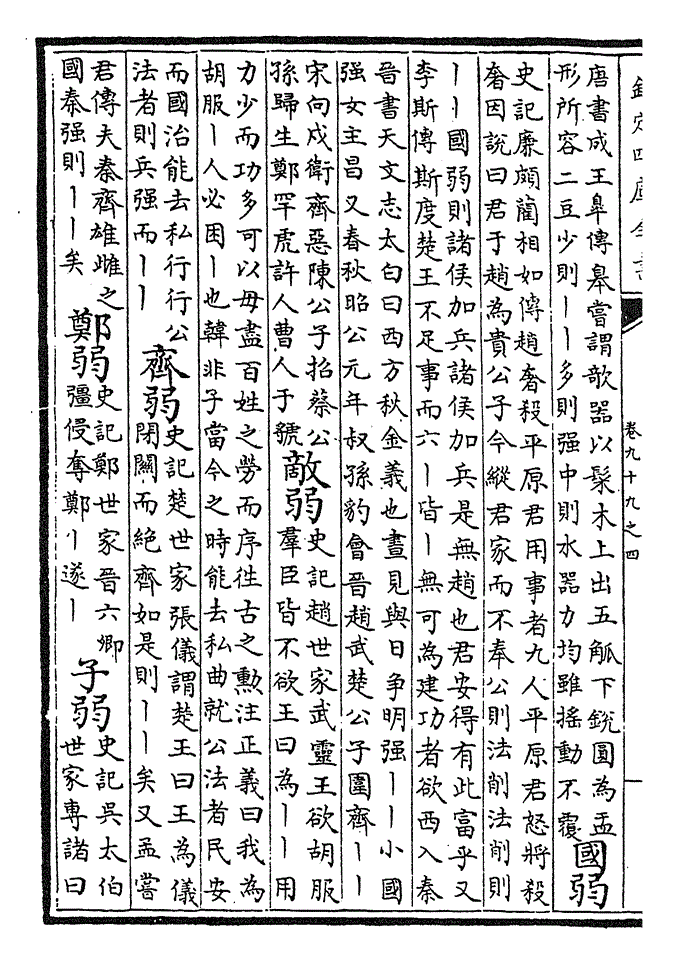 欽定四庫全書
卷九十九之四
唐書成王臯傳臯嘗謂欹器以髹木上出五觚下銳圓為盂
形所容二豆少則丨丨多則强中則水器力均雖搖動不覆
國弱
史記廉頗藺相如傳趙奢殺平原君用事者九人平原君怒將殺
奢因說曰君于趙為貴公子今縱君家而不奉公則法削法削則
丨丨國弱則諸侯加兵諸侯加兵是無趙也君安得有此富乎又
李斯傳斯度楚王不足事而六丨皆丨無可為建功者欲西入秦
晉書天文志太白曰西方秋金義也晝見與日争明强丨丨小國
强女主昌又春秋昭公元年叔孫豹會晉趙武楚公子圍齊丨丨
宋向戌衛齊惡陳公子招蔡公
孫歸生鄭罕虎許人曹人于虢
敵弱
史記趙世家武靈王欲胡服
羣臣皆不欲王曰為丨丨用
力少而功多可以毋盡百姓之勞而序徃古之勲注正義曰我為
胡服丨人必困丨也韓非子當今之時能去私曲就公法者民安
而國治能去私行行公
法者則兵强而丨丨
齊弱
史記楚世家張儀謂楚王曰王為儀
閉關而絶齊如是則丨丨矣又孟嘗
君傳夫秦齊雄雌之
國秦强則丨丨矣
鄭弱
史記鄭世家晉六卿
彊侵奪鄭丨遂丨
子弱
史記吳太伯
世家專諸曰